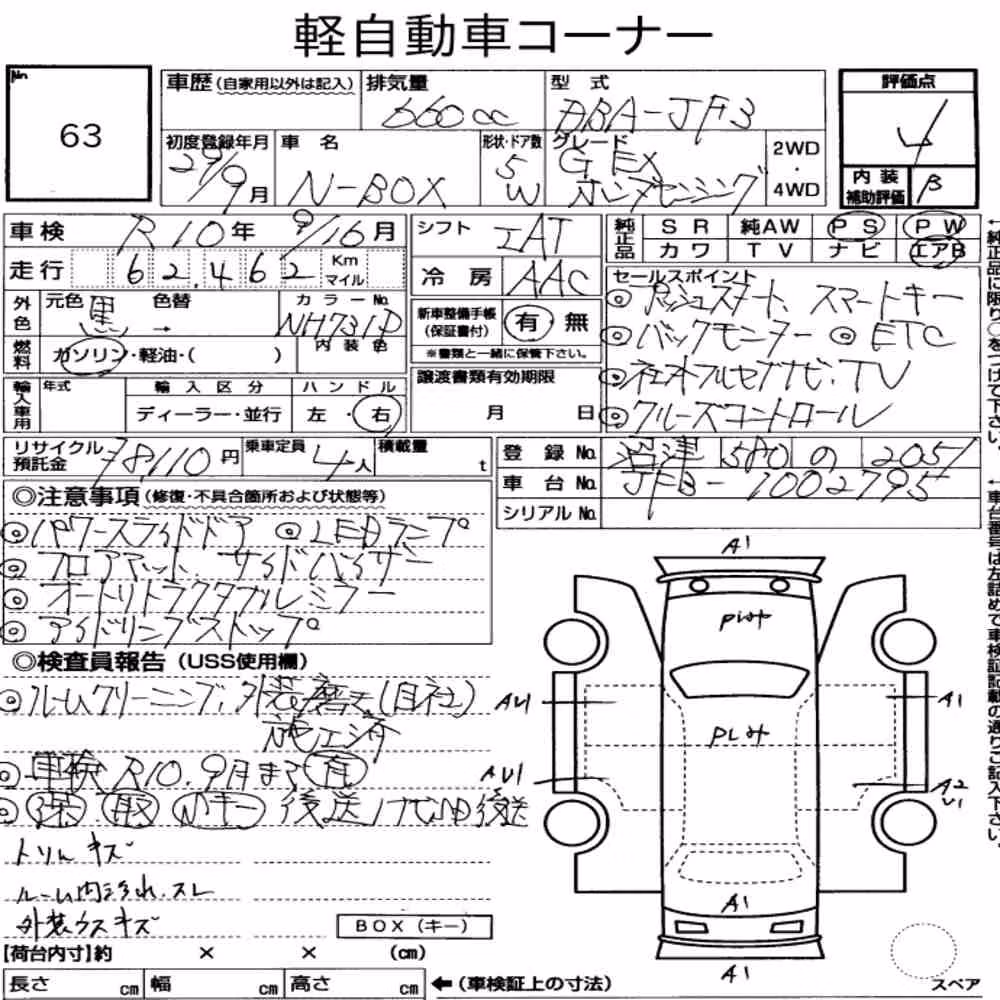 軽自動車コーナー
No.
63
車歴(自家用以外は記入)
排気量
660cc
型式
DBA-JF3
評価点
4
初度登録年月
29/9月
車名
N-BOX
形状・ドア数
5
W
グレード
G EX
ホンダセンシング
2WD
・
4WD
内装
補助評価
B
車検 R10年 9/16月
走行 62,462 Km
マイル
シフト IAT
冷房 AAC
純正品
SR 純AW PS PW
カワ TV ナビ エアB
外色
元色 黒 色替 →
カラーNo.
NH731P
燃料
ガソリン・軽油・( )
内装色
新車整備手帳
(保証書付)
有・無
※書類と一緒に保管下さい。
セールスポイント
◎プッシュスタート、スマートキー
◎バックモニター ◎ETC
◎社外フルセグナビ、TV
◎クルーズコントロール
輸入車用
年式
輸入区分
ディーラー・並行
ハンドル
左・右
譲渡書類有効期限
月 日
リサイクル
預託金
78110円
乗車定員
4人
積載量
t
登録No. 沼津 580 の 2051
車台No. JF3-1002795
シリアルNo.
◎注意事項(修復・不具合箇所および状態等)
◎パワースライドドア ◎LEDランプ
◎フロアマット、サイドバイザー
◎オートリトラクタブルミラー
◎アイドリングストップ
◎検査員報告(USS使用欄)
◎ルームクリーニング、外装磨き(自社)
施工済
◎車検R10.9月まで有
◎保 取 Nキー 後送
トリムキズ
ルーム内汚れ.スレ
外装ウスキズ
BOX(キー)
【荷台内寸】約 × × (cm)
長さ cm 幅 cm 高さ cm
←(車検証上の寸法)
A1
AU1
A1
AU1
A2
U1
A1
A1
スペア
←純正品に限り○をつけて下さい。
←車台番号は左詰めで車検証記載の通りご記入下さい。